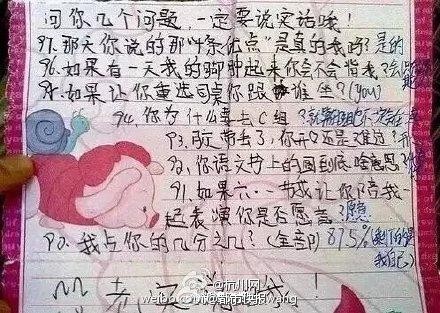 问你几个问题，一定要说实话哦！
97.那天你说的那“十条优点”是真的我吗？是的
96.如果有一天我的脚肿起来你会不会背我？会
95.如果让你重选同桌你跟谁坐？(you)
94.你为什么要去C组？
93.我走了，你开心还是难过？
92.你语文书上的画到底啥意思
91.如果六·一节我让你陪我一
起表演你是否愿意？愿意
90.我占你的几分之几？(全部) 87.5%(剩下的是
我自己)
一定
！
@杭州网
weibo.com/@都市快报wang